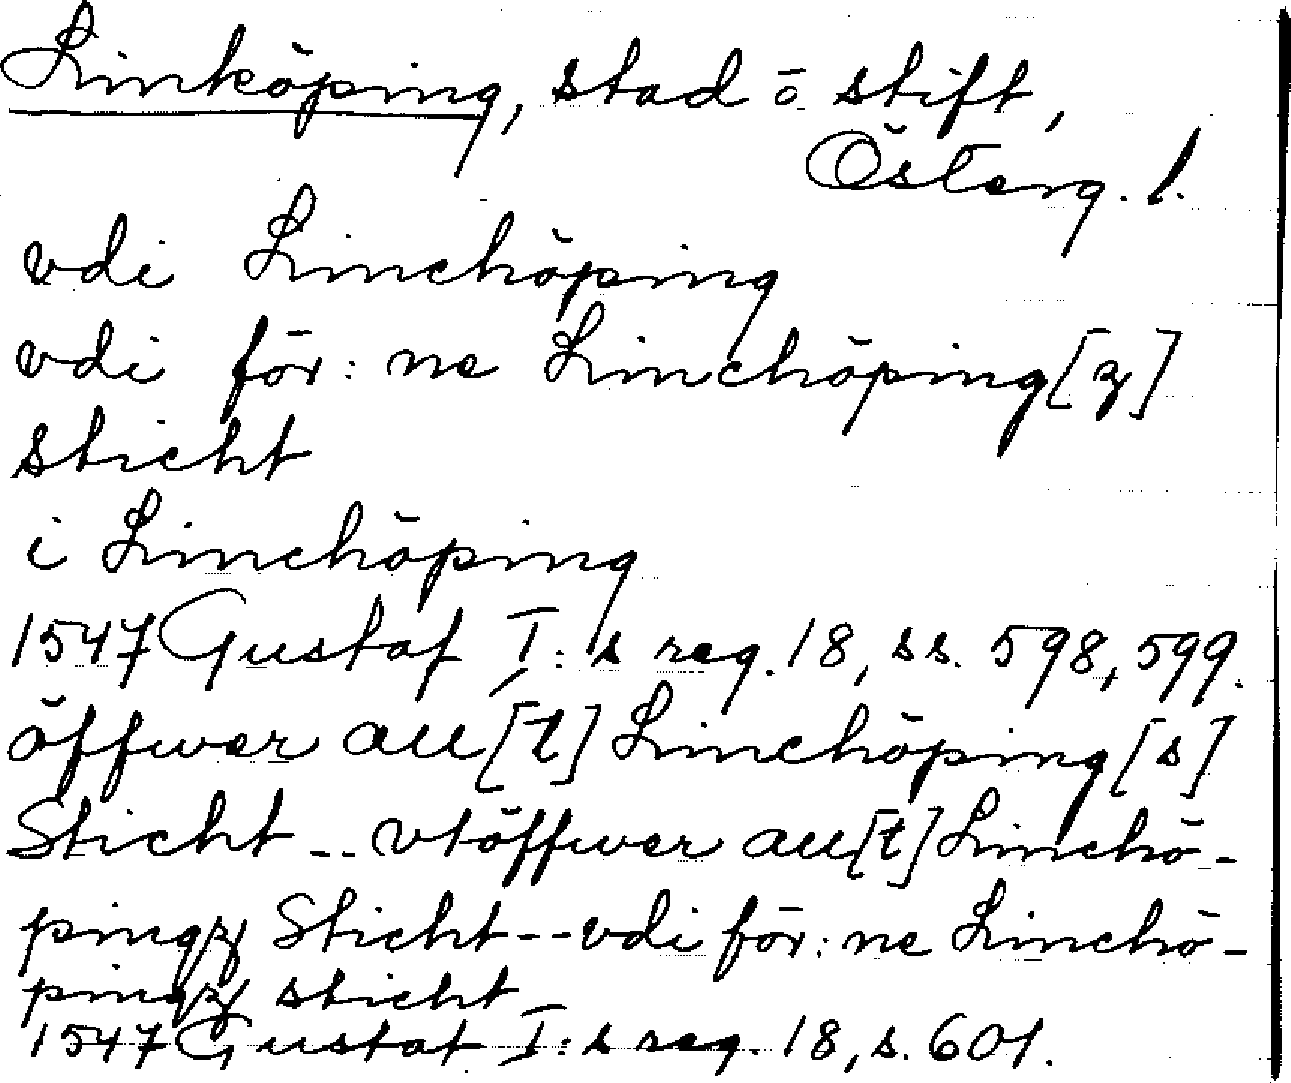 Linköping, stad o stift,
Österg. l.
vdi Linchöping
vdi för: ne Linchöping[z]
sticht
i Linchöping
1547 Gustaf I: s reg. 18, ss. 598, 599.
öffwer all[t] Linchöping[s]
Sticht -- vtöffwer all[t] Linchö-
pingz Sticht -- vdi för: ne Linchö-
pingz sticht
1547 Gustaf I: s reg. 18, s. 601.